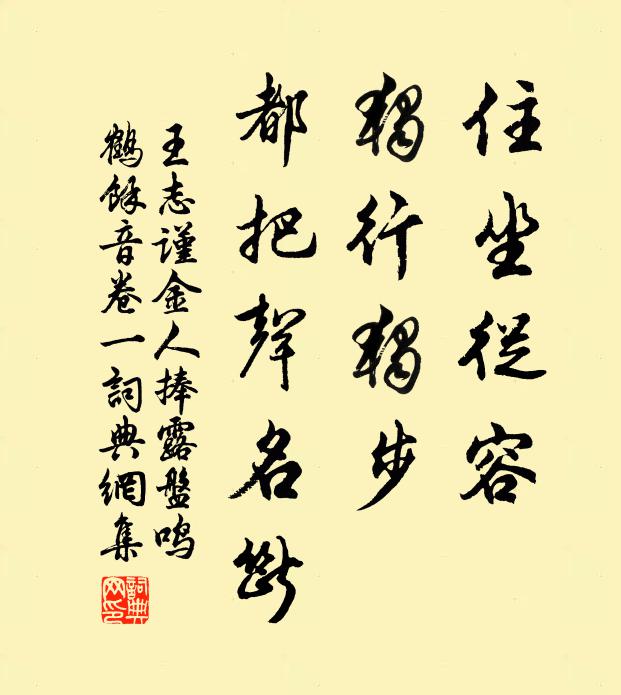 住坐從容
獨行獨步
都把聲名斷
王志謹金人捧露盤鳴
鶴餘音卷一詞典網集
詞典网印